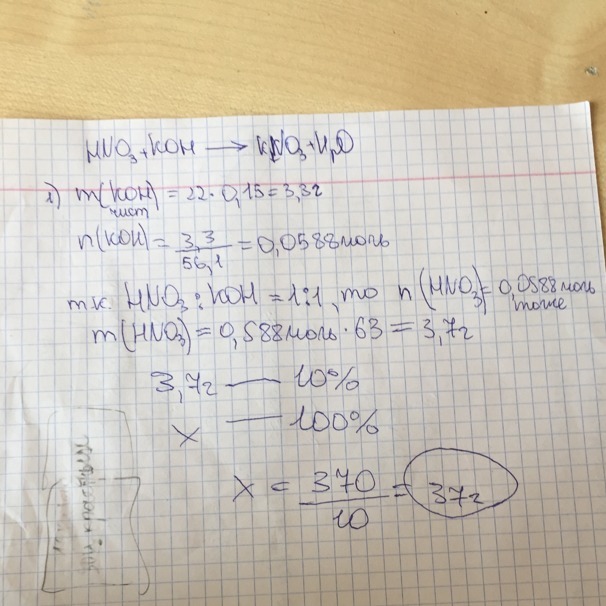 HNO₃ + KOH → KNO₃ + H₂O
1) m(KOH) = 22 · 0,15 = 3,3г
чист
n(KOH) = 3,3 / 56,1 = 0,0588 моль
т.к. HNO₃ : KOH = 1:1, то n(HNO₃) = 0,0588 моль
тоже
m(HNO₃) = 0,588 моль · 63 = 3,7г
3,7г — 10%
x — 100%
x = 370 / 10 = 37г